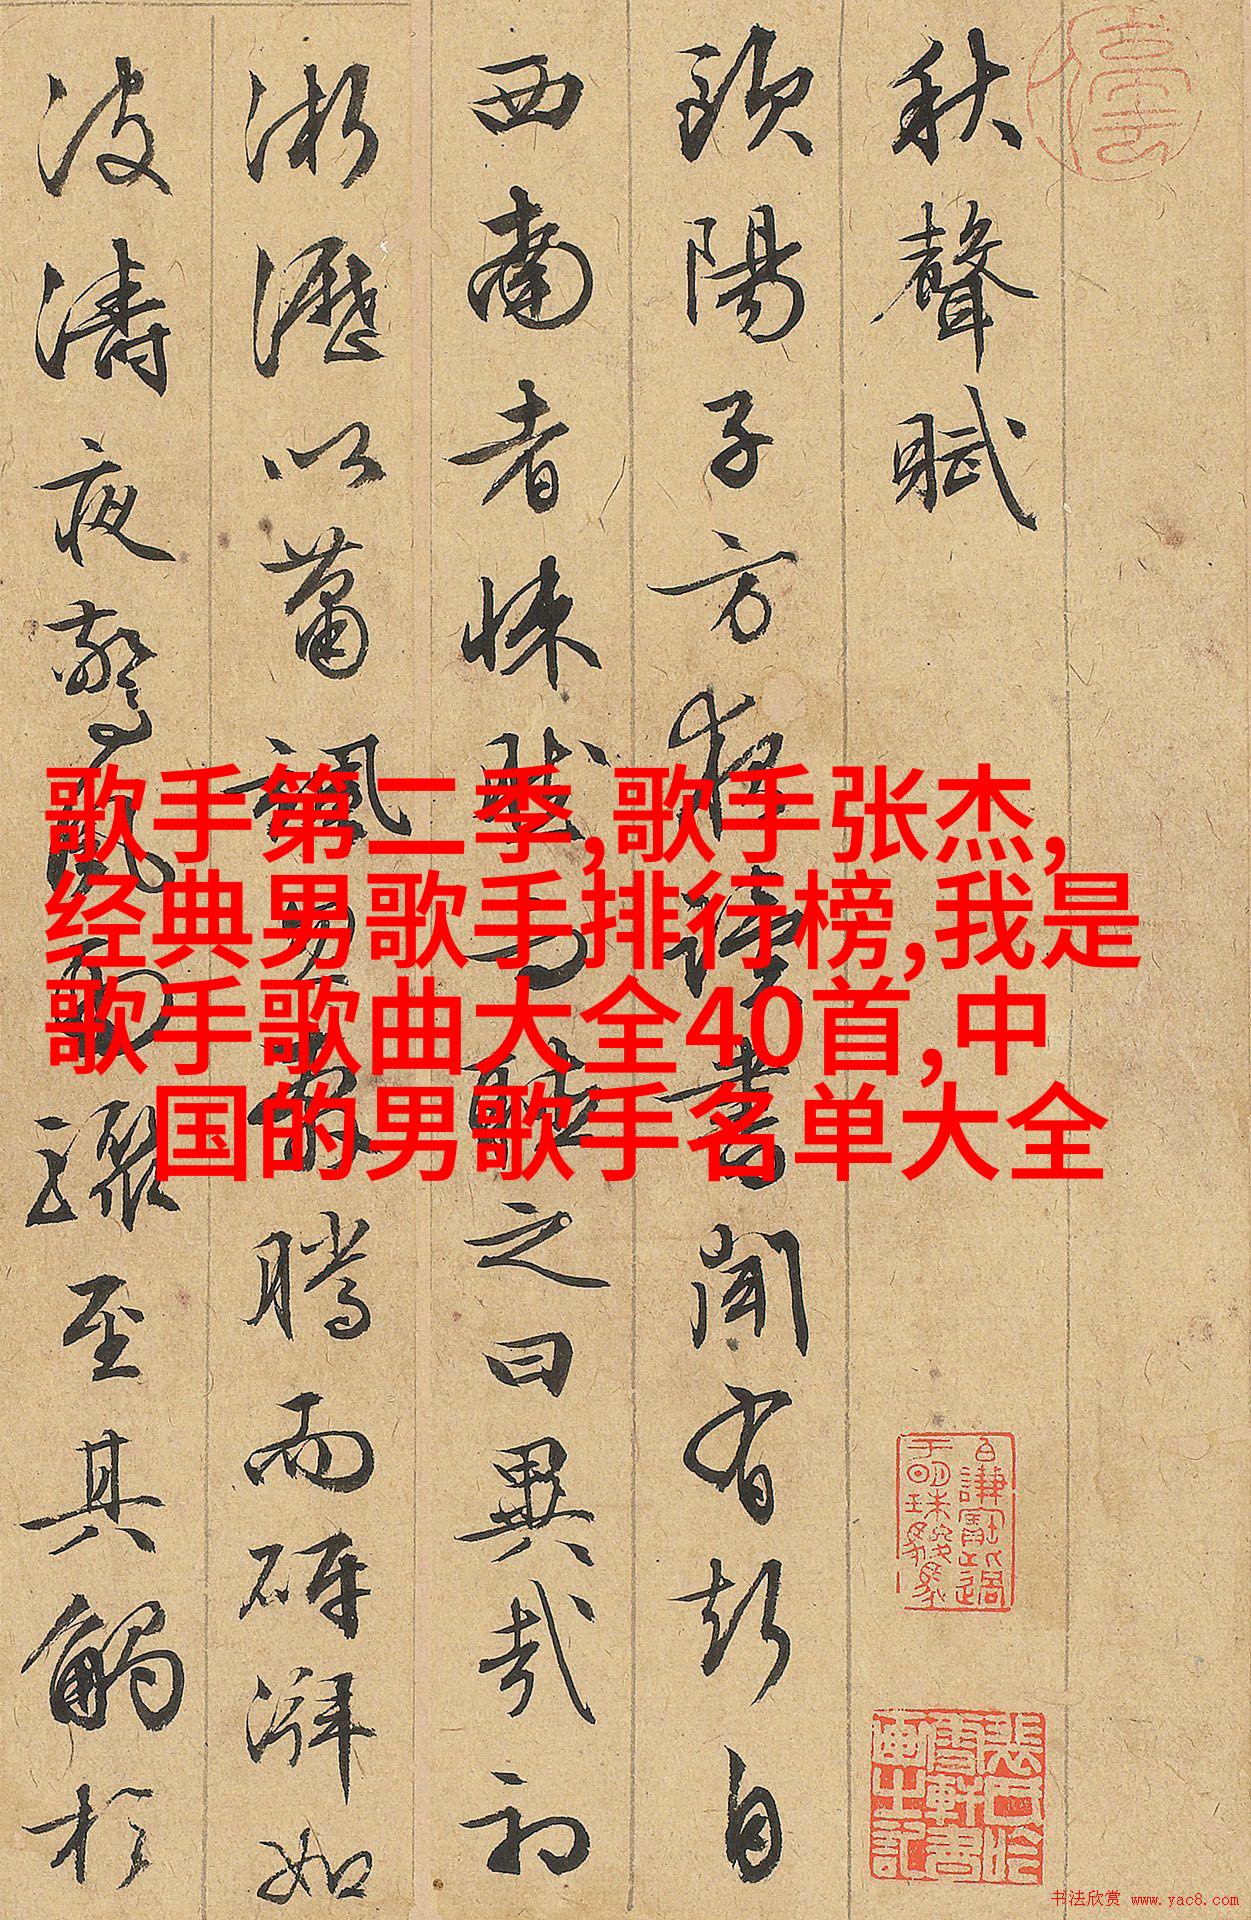 秋聲賦
歐陽子方夜讀書聞有聲自
西南者悚然而聽之曰異哉初
淅瀝以蕭颯忽奔騰而砰湃如
波濤夜驚風雨驟至其觸於
歌手第二季,歌手张杰,
经典男歌手排行榜,我是
歌手歌曲大全40首,中
国的男歌手名单大全
书法欣赏 www.yac8.com